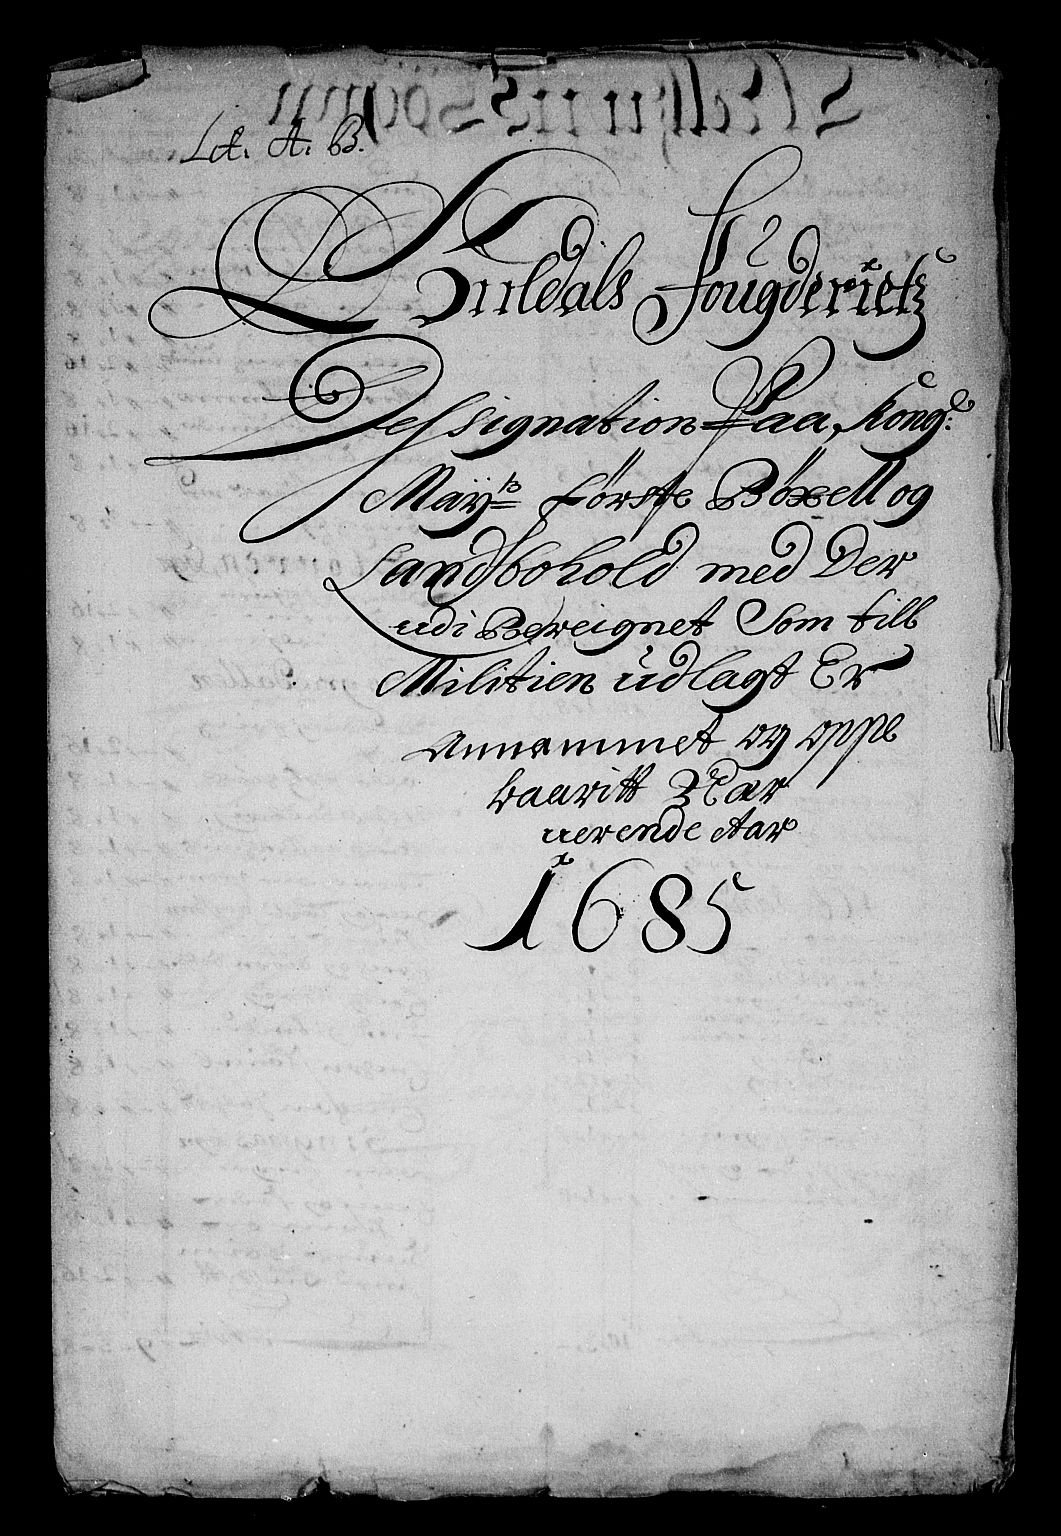 Lit. A. B.
Guldals Fougderietz
Dessignation Paa, Kong:
Maÿts Første Bøxell og
Landbohold med Der
udi Bereignet Som till
Militien udlagt Er
Annammet og oppe
baaritt Nær
uerende Aar
1685